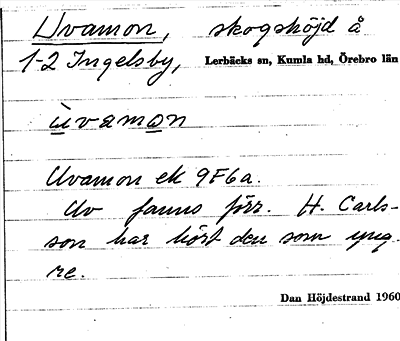 Uvamon, skogshöjd å
1-2 Ingelsby, Lerbäcks sn, Kumla hd, Örebro län
ùvamon
Uvamon ek 9F6a.
Uv fanns förr. H. Carls-
son har hört den som yng-
re.
Dan Höjdestrand 1960